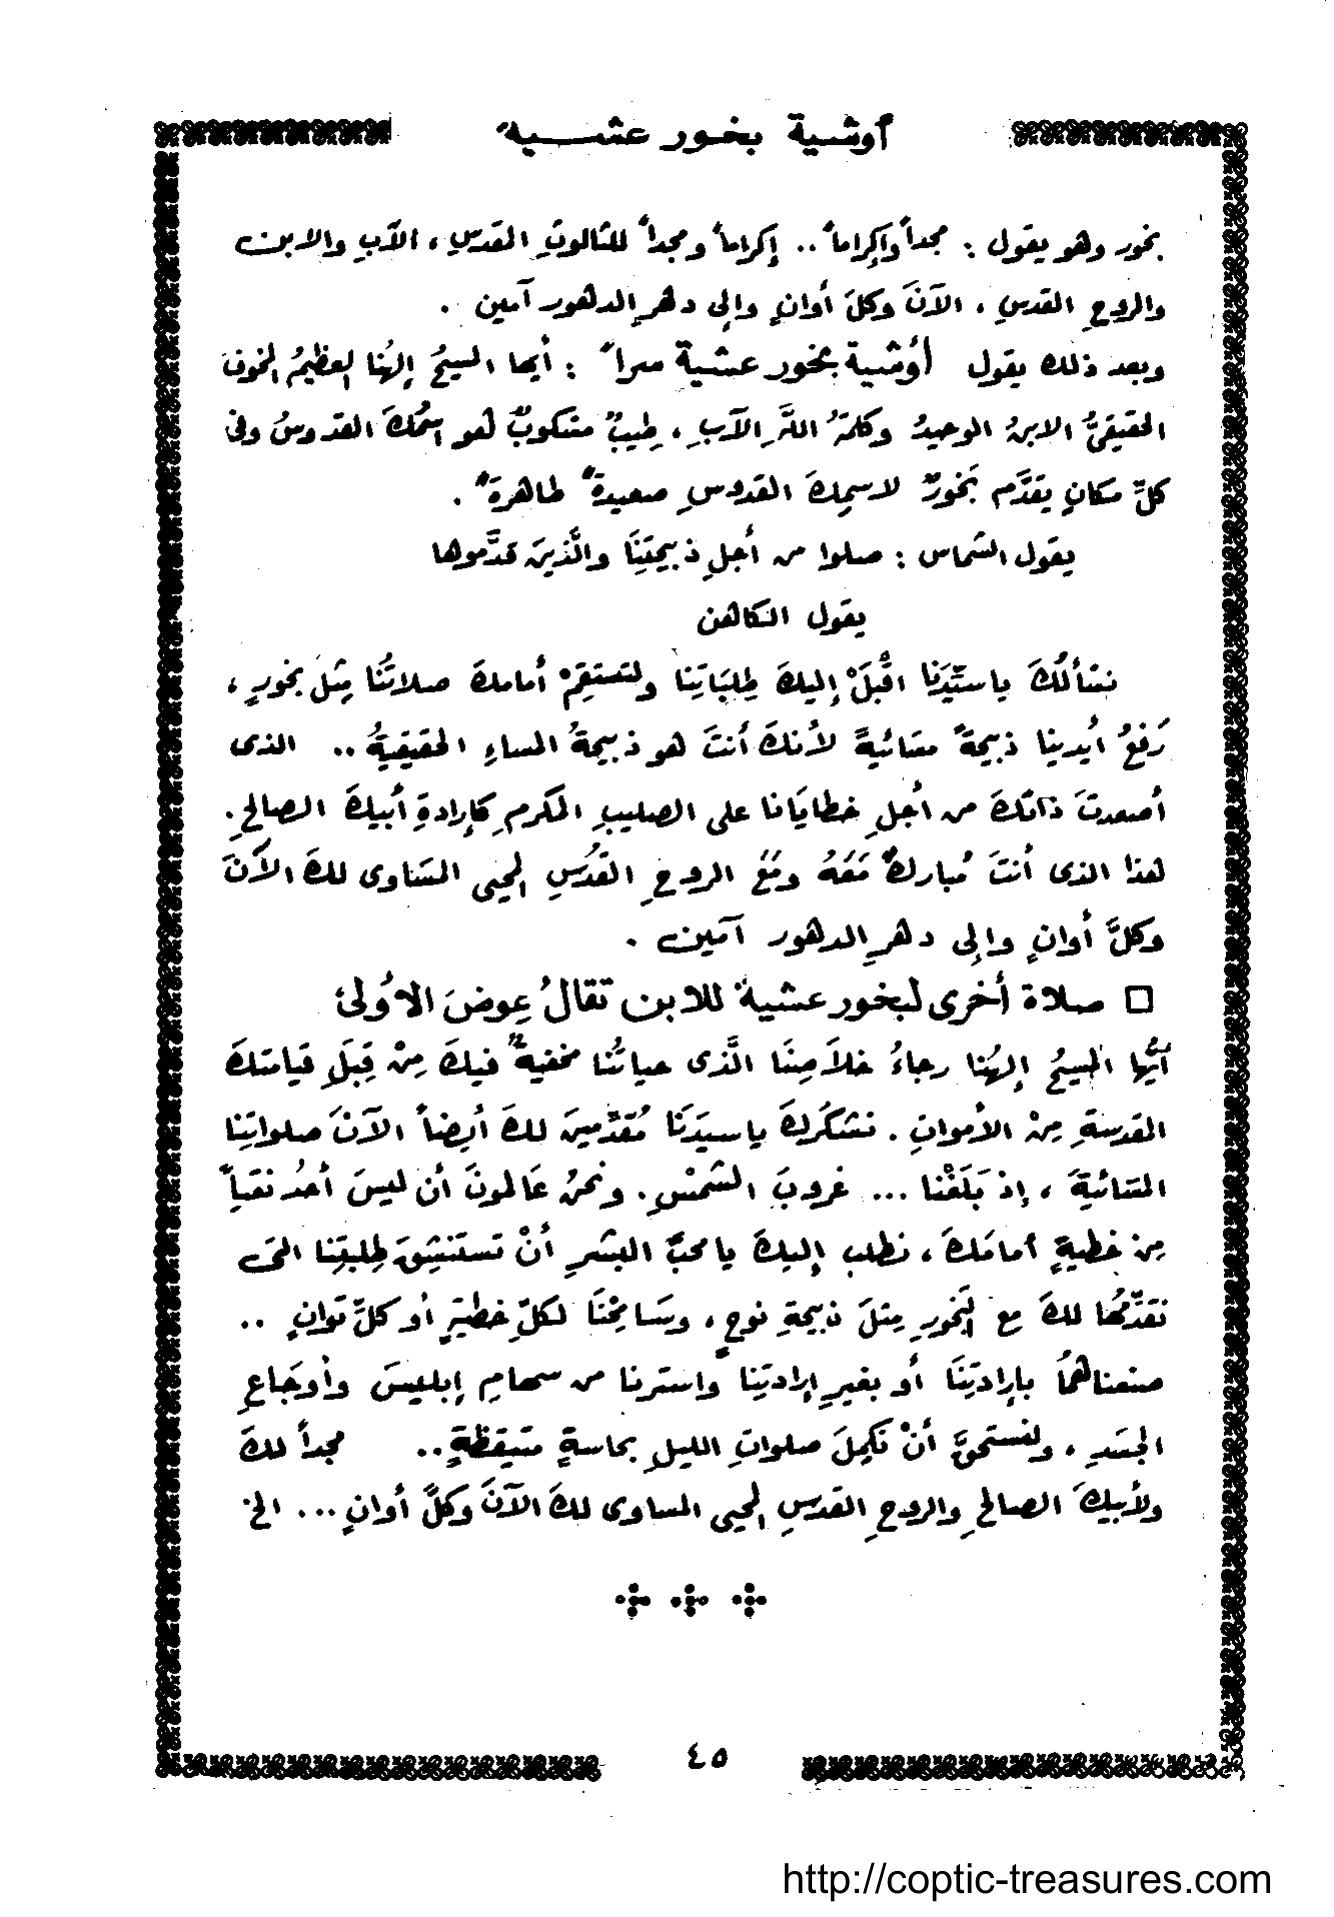 أوشية بخور عشية
بخور وهو يقول : مجداً وإكراماً .. إكراماً ومجداً للثالوثِ المقدسِ ، الآبِ والابن
والروحِ القدسِ ، الآنَ وكلَ أوانٍ وإلى دهرِ الدهور آمين .
وبعد ذلك يقول أوُشية بخور عشية سراً : أيها المسيحُ إلهُنا العظيمُ المخوف
الحقيقىُّ الابنُ الوحيدُ وكلمةُ اللَّهِ الآبِ ، طِيبٌ مسكوبٌ هو اسمُكَ القدوسُ وفى
كلِّ مكانٍ يقدَّم بَخورٌ لاسمِكَ القدوسِ صعيدةً طاهرةً .
يقول الشماس : صلوا من أجلِ ذبيحتِنَا والَّذينَ قدَّموها
يقول الكاهن
نسألُكَ ياسيِّدَنا اقْبَلْ إليكَ طِلبَاتِنا ولتستقِمْ أمامك صلاتُنا مِثلَ بخورٍ ،
رَفعُ أيدينا ذبيحةً مسَائيةً لأنكَ أنتَ هو ذبيحةُ المساءِ الحقيقيةُ .. الذى
أصعدتَ ذاتكَ من أجلِ خطايَانا على الصليبِ المكرمِ كإرادةِ أبيكَ الصالحِ .
هذا الذى أنتَ مُباركٌ مَعَهُ ومَعَ الروحِ القُدُسِ المحيى المسَاوى لكَ الآنَ
وكلَّ أوانٍ وإلى دهرِ الدهور آمين .
□ صلاة أخرى لبخور عشية للابن تقالُ عِوضَ الأُولىٰ
أيُّها المسيحُ إلهُنا رجاءُ خلاَصِنَا الَّذى حياتُنا مخفيةٌ فيكَ مِنْ قِبَلِ قيامتكَ
المقدسةِ مِنْ الأمواتِ . نشكُركَ ياسيدَنَا مُقدَّمينَ لكَ أيضاً الآنَ صلواتِنا
المسَائيةَ ، إذ بَلَغْنا ... غروبَ الشمْسِ . ونحنُ عَالمونَ أن ليسَ أحدُ نقياً
مِنْ خطيةٍ أمامَكَ ، نطلب إليكَ يا محبَّ البشرِ أنْ تستنشِقَ طِلبتِنا التى
نقدِّمُها لكَ مع البَخورِ مِثلَ ذبيحةِ نوحٍ ، وسَامِحْنَا لكلِّ خطيةٍ أو كلِّ توانٍ ..
صنعناهُما بإرادتِنَا أو بغيرِ إرادتِنا واسترنا من سهامِ إبليسَ وأوجَاعِ
الجسَدِ ، ولنستحقَّ أنْ نكمِلَ صلواتِ الليلِ بحاسةٍ متيقظةٍ .. مجداً لكَ
ولأبيكَ الصالحِ والروحِ القدسِ المحيى المساوى لكَ الآنَ وكلَّ أوانٍ ... الخ
٤٥
http://coptic-treasures.com